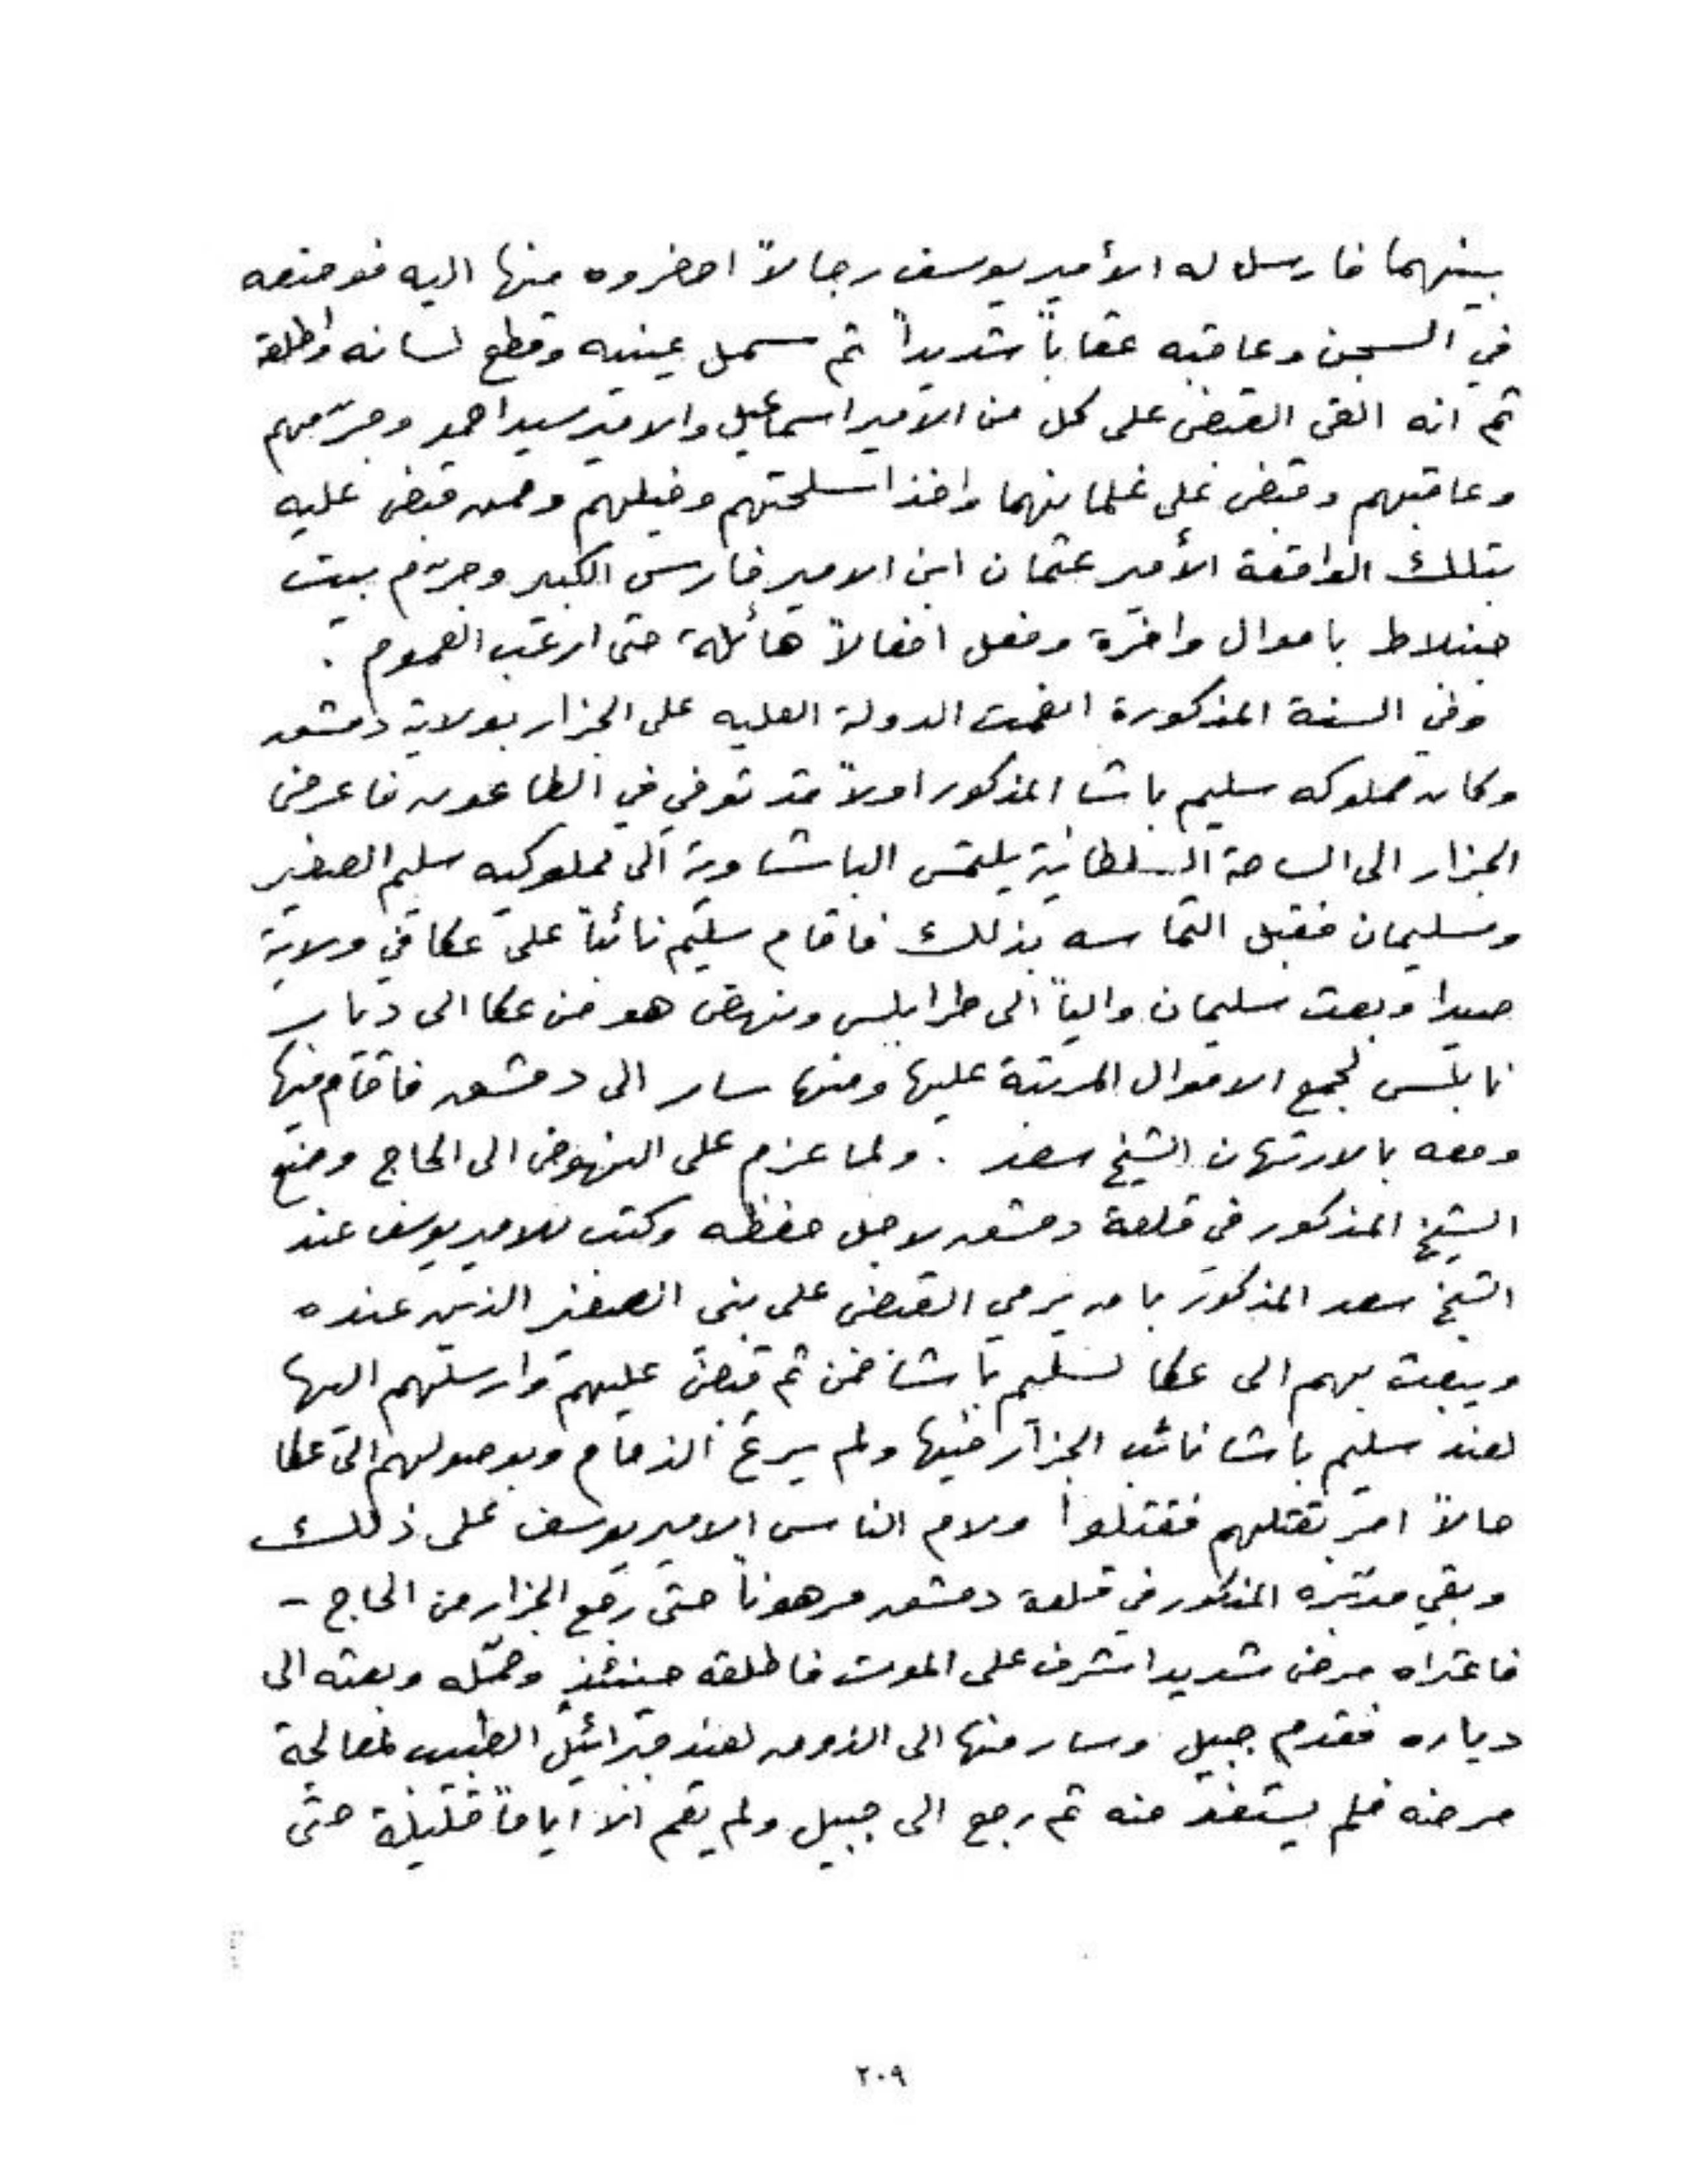 بينهما فارسل له الأمير يوسف رجالاً احضروه منها اليه فوضعه
في السجن وعاقبه عقاباً شديداً ثم سمل عينيه وقطع لسانه واطلقه
ثم انه القى القبض على كل من الامير اسماعيل والامير سيد احمد وجرّمهم
وعاقبهم وقبض على غلمانهما واخذ اسلحتهم وخيلهم وممن قبض عليه
بتلك الواقعة الأمير عثمان ابن الامير فارس الكبير وجرّم بيت
جنبلاط باموال وافرة وفعل افعالاً هائلة حتى ارعب العموم .
وفي السنة المذكورة انعمت الدولة العليه على الجزار بولاية دمشق
وكان مملوكه سليم باشا المذكور اولاً قد توفي في الطاعون فاعرض
الجزار الى الساحة السلطانية يلتمس الباشاوية الى مملوكيه سليم الصغير
وسليمان فقبل التماسه بذلك فاقام سليم نائباً على عكا في ولاية
صيدا وبعث سليمان والياً الى طرابلس ونهض هو من عكا الى ديار
نابلس لجمع الاموال المرتبة عليها ومنها سار الى دمشق فاقام فيها
ومعه بالارتهان الشيخ سعد . ولما عزم على النهوض الى الحاج وضع
الشيخ المذكور في قلعة دمشق لاجل حفظه وكتب للامير يوسف عند
الشيخ سعد المذكور بان يرمي القبض على بني الصغير الذين عنده
ويبعث بهم الى عكا لسليم باشا فمن ثم قبض عليهم وارسلهم اليها
لعند سليم باشا نائب الجزار فيها ولم يرع الذمام وبوصولهم الى عكا
حالاً امر بقتلهم فقتلوا ولام الناس الامير يوسف على ذلك
وبقي مدبّره المذكور في قلعة دمشق مرهوناً حتى رجع الجزار من الحاج -
فاعتراه مرض شديد اشرف على الموت فاطلقه حينئذٍ وحمّله وبعثه الى
دياره فقدم جبيل وسار منها الى الزوق لعند جبرائيل الطبيب لمعالجة
مرضه فلم يستفد منه ثم رجع الى جبيل ولم يقم الا اياماً قليلة حتى
٢٠٩